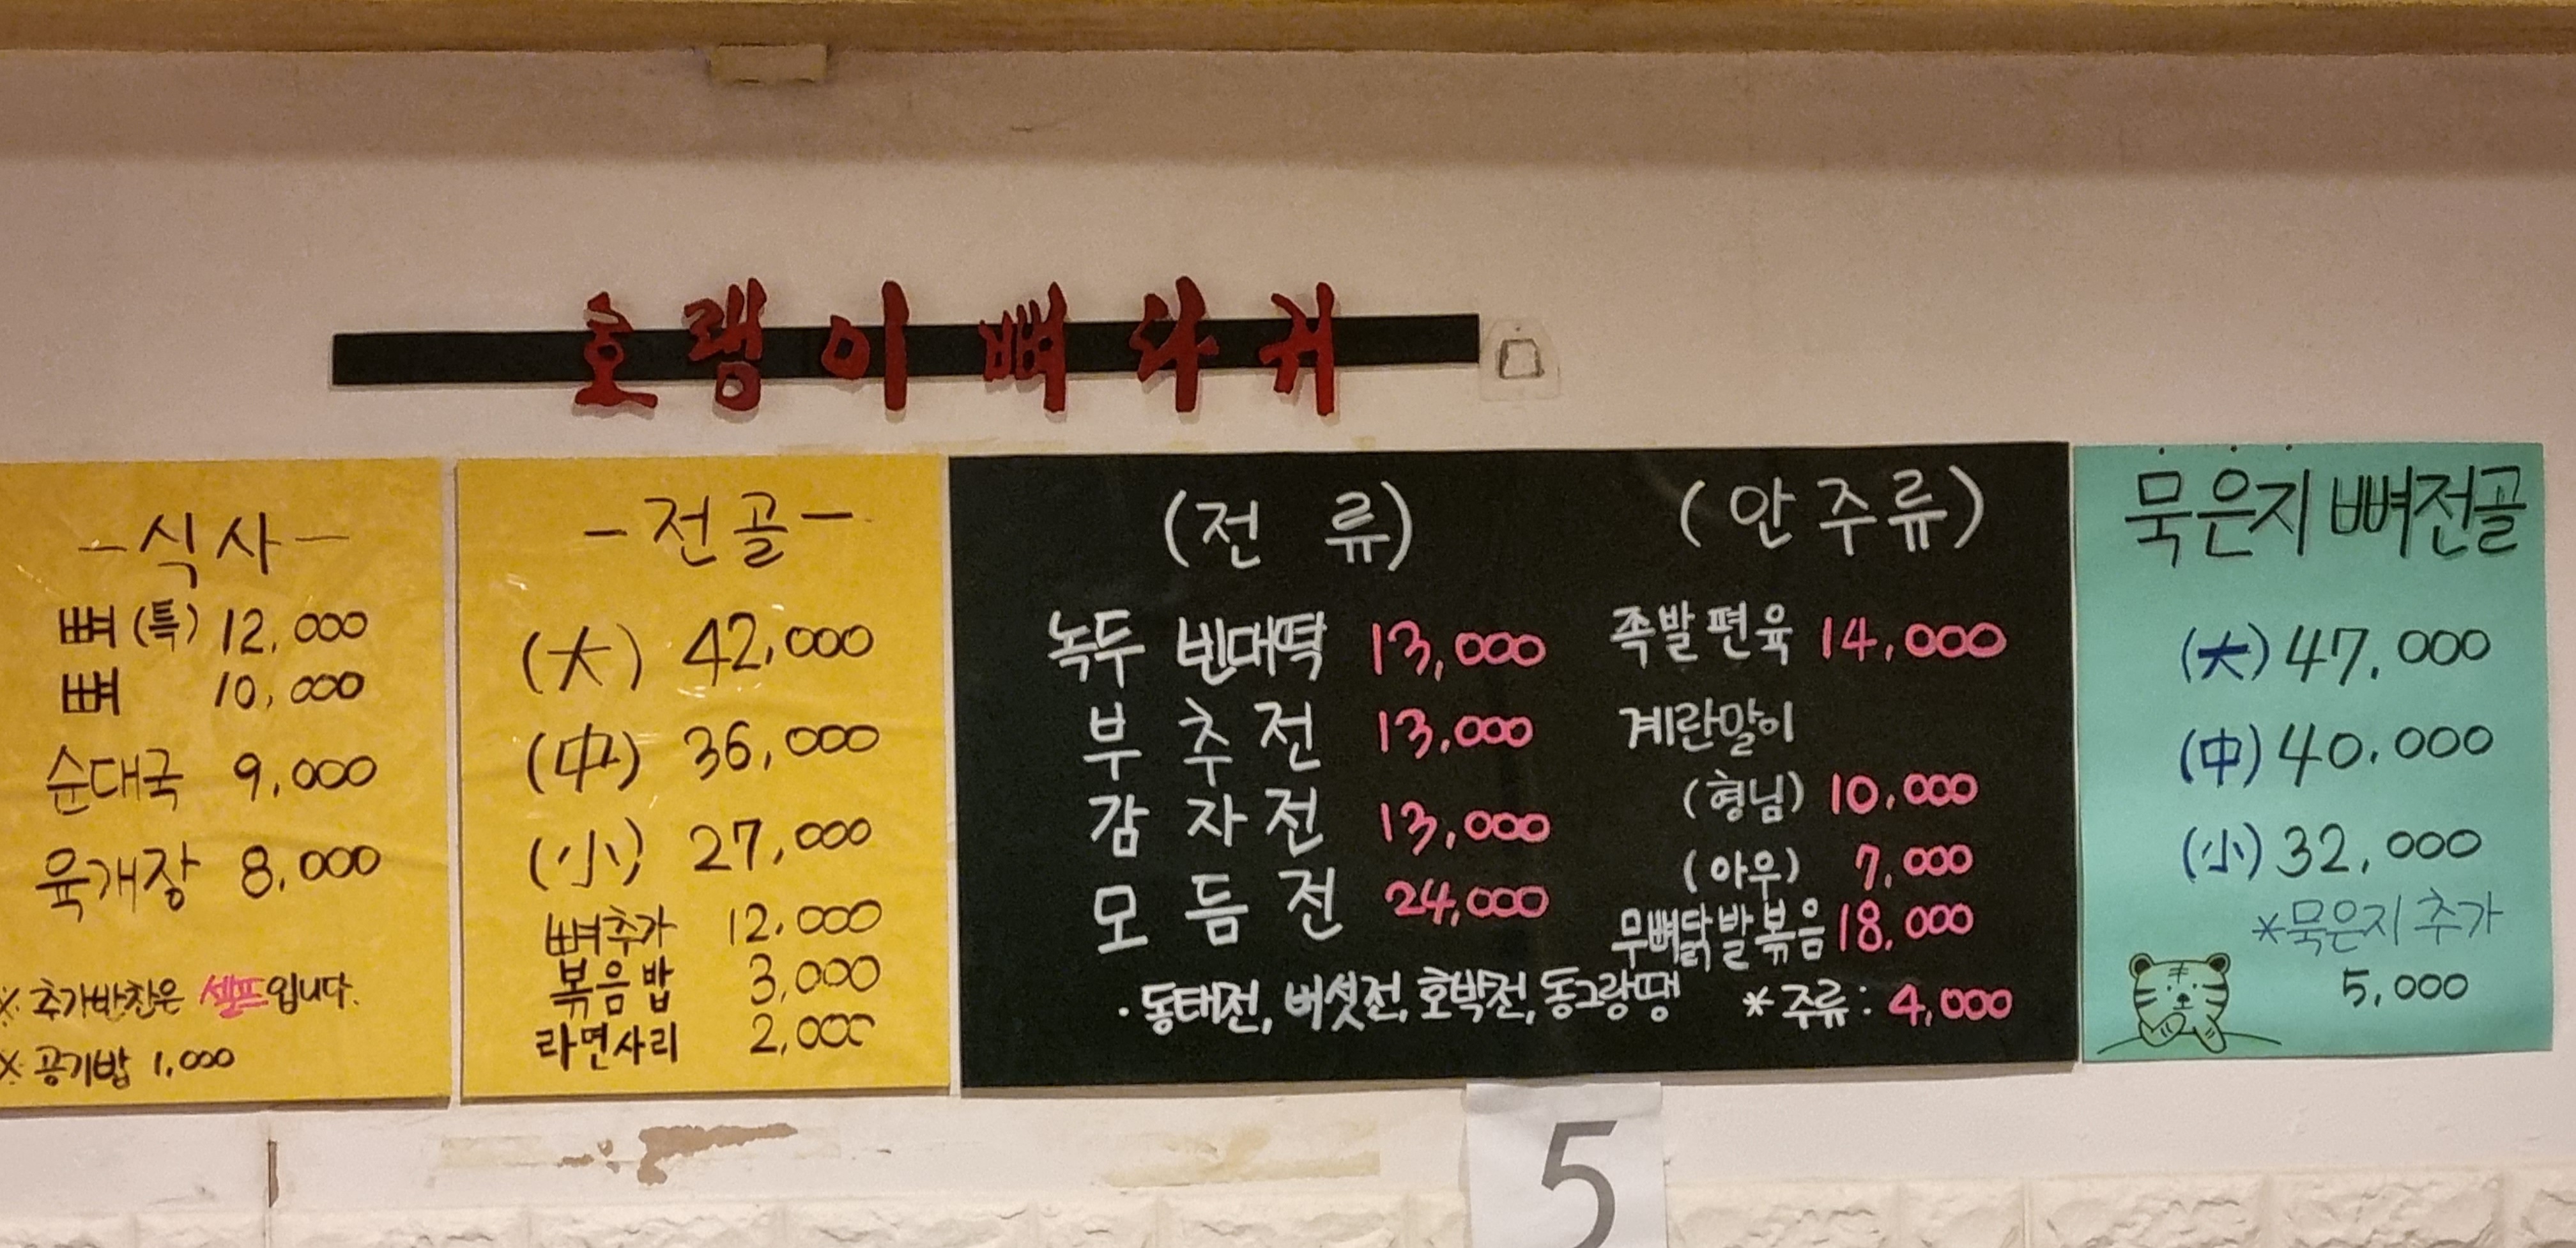 호랭이뼈다귀
-식사-
뼈(특) 12,000
뼈 10,000
순대국 9,000
육개장 8,000
※ 추가반찬은 셀프입니다.
※ 공기밥 1,000
-전골-
(大) 42,000
(中) 36,000
(小) 27,000
뼈추가 12,000
볶음밥 3,000
라면사리 2,000
(전 류)
녹두 빈대떡 13,000
부 추 전 13,000
감 자 전 13,000
모 듬 전 24,000
· 동태전, 버섯전, 호박전, 동그랑땡
(안주류)
족발편육 14,000
계란말이
(형님) 10,000
(아우) 7,000
무뼈닭발볶음 18,000
* 주류 : 4,000
묵은지 뼈전골
(大) 47,000
(中) 40,000
(小) 32,000
*묵은지 추가
5,000
5